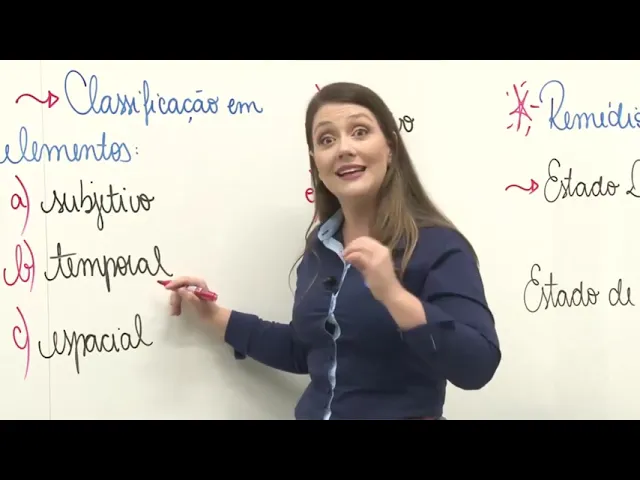 Classificação em
elementos:
a) subjetivo
b) temporal
c) espacial
Remédio
Estado
Estado de